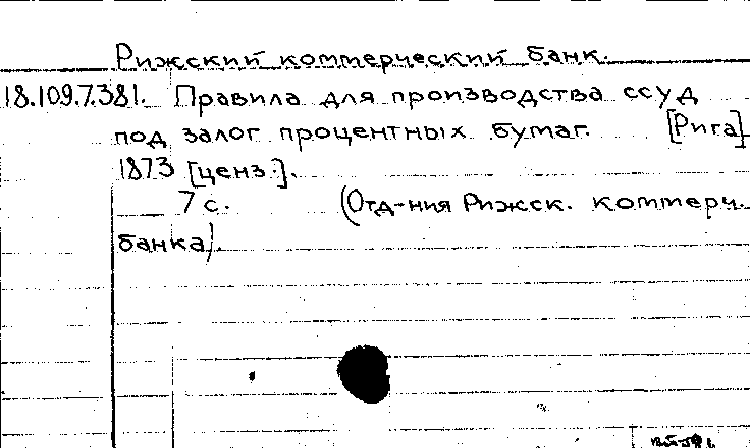 Рижский коммерческий банк.
18.109.7.381. Правила для производства ссуд
под залог процентных бумаг. [Рига]
1873 [ценз.].
7 с. (Отд-ния Рижск. коммерч.
банка).